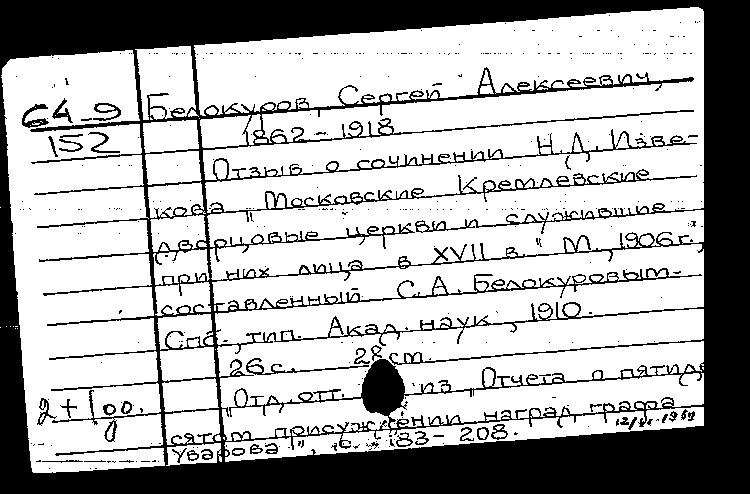 64-9
152
Белокуров, Сергей Алексеевич,
1862-1918
Отзыв о сочинении Н.Д. Изве-
кова „Московские Кремлевские
дворцовые церкви и служившие
при них лица в XVII в." М., 1906г.",
составленный С.А. Белокуровым.-
Спб., тип. Акад. наук, 1910.
26 с. 28 cm.
„Отд. отт. из „Отчета о пятиде
сятом присуждении наград графа
Уварова", с. 183-208.
2+1